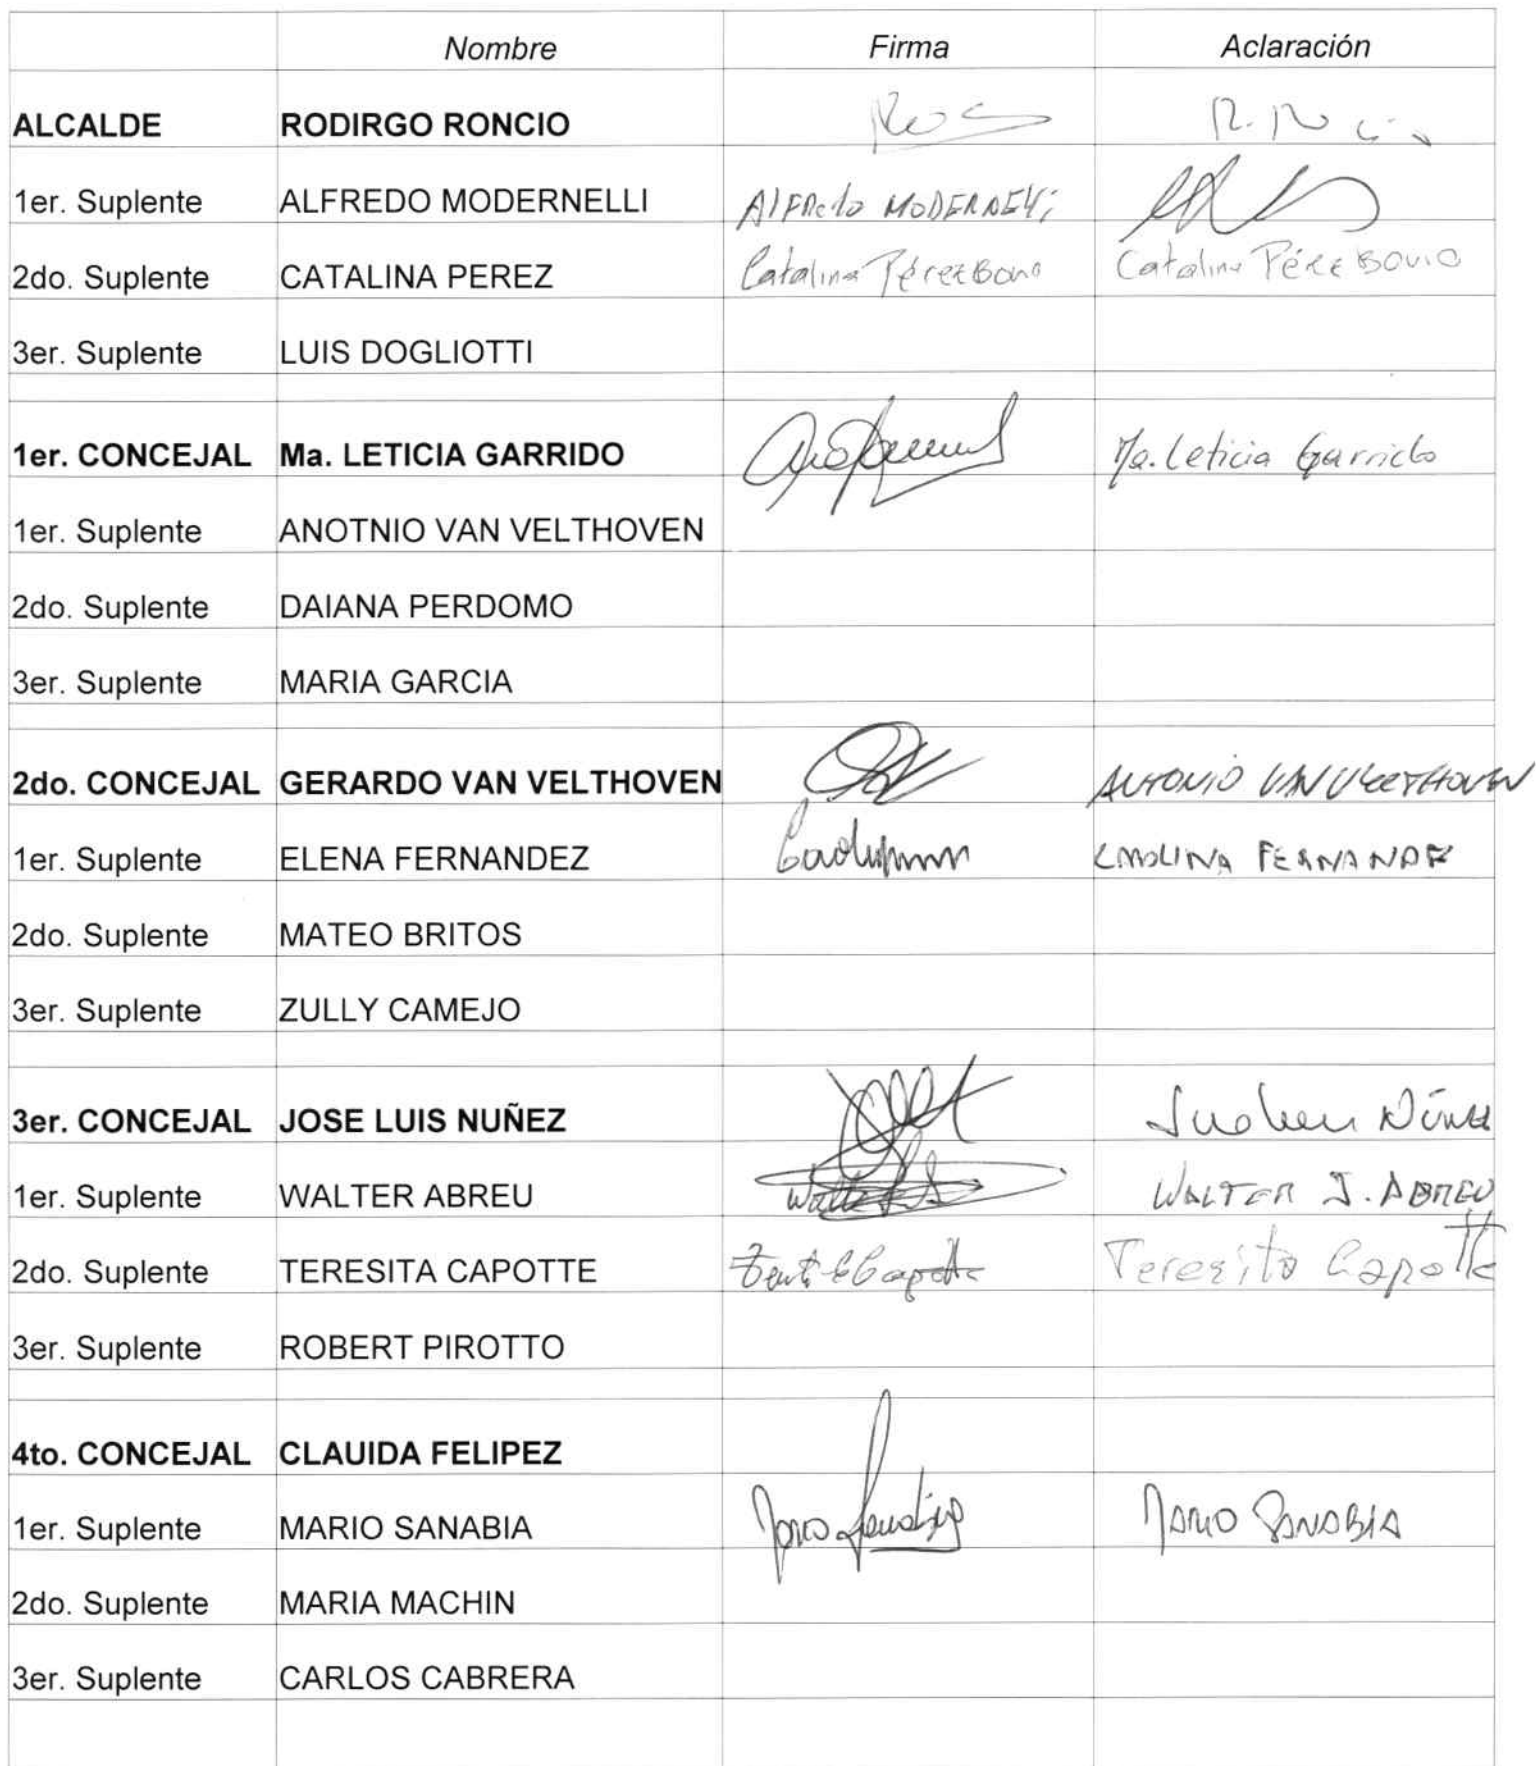 Nombre Firma Aclaración
ALCALDE RODIRGO RONCIO
1er. Suplente ALFREDO MODERNELLI Alfredo MODERNELLi
2do. Suplente CATALINA PEREZ Catalina Pérez Bovio Catalina Pérez BOVIO
3er. Suplente LUIS DOGLIOTTI
1er. CONCEJAL Ma. LETICIA GARRIDO Ma. Leticia Garrido
1er. Suplente ANOTNIO VAN VELTHOVEN
2do. Suplente DAIANA PERDOMO
3er. Suplente MARIA GARCIA
2do. CONCEJAL GERARDO VAN VELTHOVEN ANTONIO VAN VELTHOVEN
1er. Suplente ELENA FERNANDEZ CAROLINA FERNANDEZ
2do. Suplente MATEO BRITOS
3er. Suplente ZULLY CAMEJO
3er. CONCEJAL JOSE LUIS NUÑEZ
1er. Suplente WALTER ABREU WALTER J. ABREU
2do. Suplente TERESITA CAPOTTE Teresita Capotte
3er. Suplente ROBERT PIROTTO
4to. CONCEJAL CLAUIDA FELIPEZ
1er. Suplente MARIO SANABIA Mario Sanabia MARIO SANABIA
2do. Suplente MARIA MACHIN
3er. Suplente CARLOS CABRERA